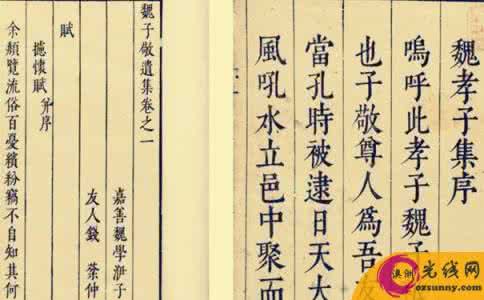 魏孝子集序
嗚呼此孝子魏子
也子敬尊人爲吾
當孔時被逮日天大
風吼水立邑中聚而
魏子敬遺集卷之一
嘉善魏學洢子
友人錢 棻仲
賦
攄懷賦 并序
余頫覽流俗百憂繽紛竊不自知其何
澳洲 光线网
ozsunny.com